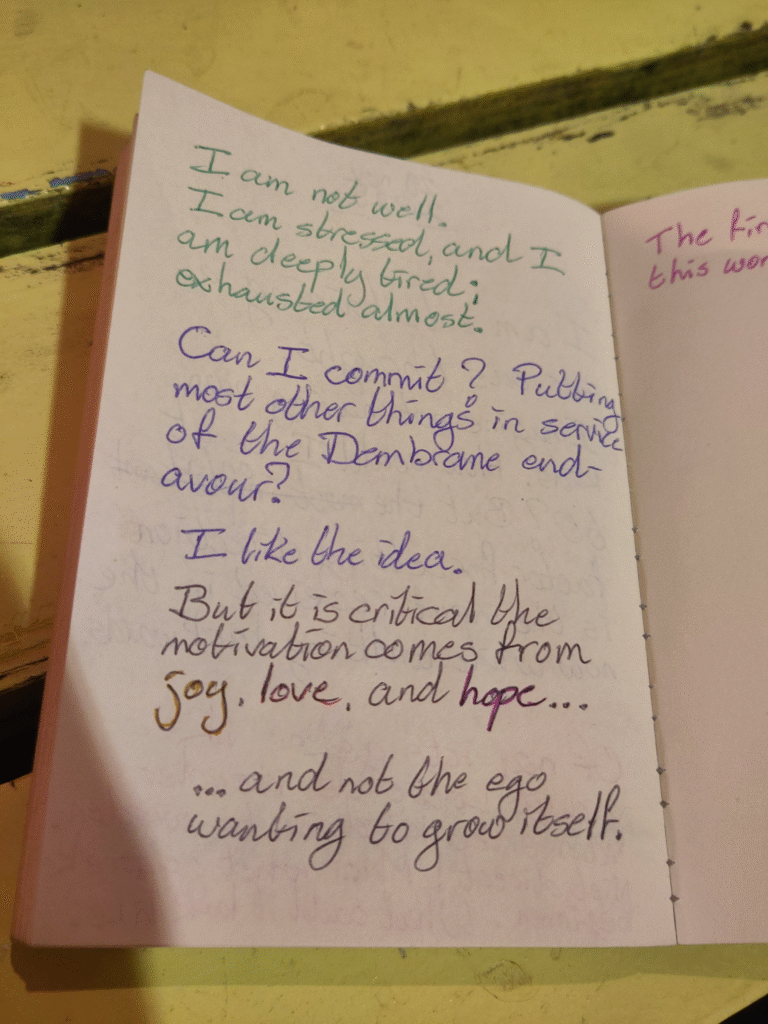 I am not well.
I am stressed, and I
am deeply tired;
exhausted almost.
Can I commit? Putting
most other things in service
of the Dembrane end-
avour?
I like the idea.
But it is critical the
motivation comes from
joy, love, and hope...
... and not the ego
wanting to grow itself.
The
this